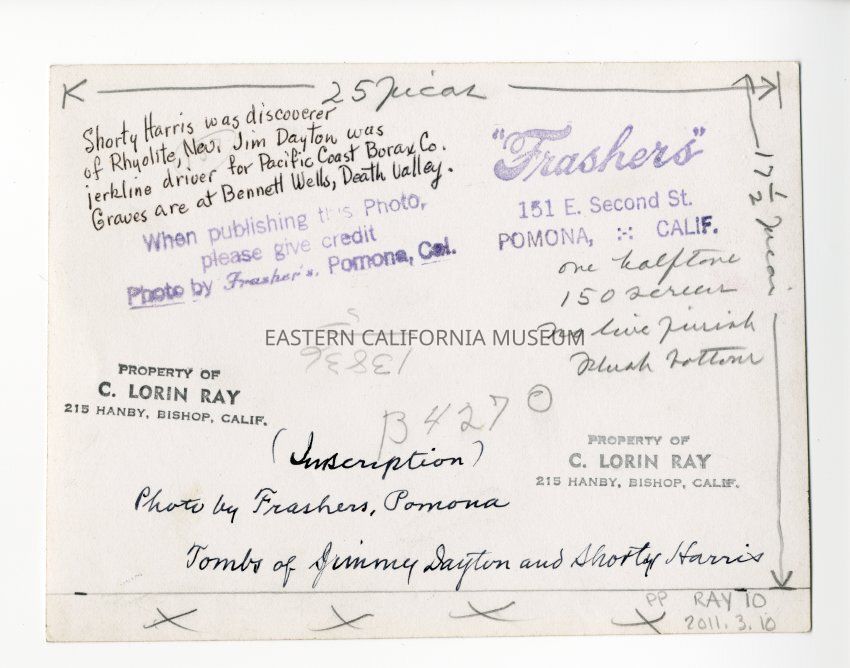 25 Picas
Shorty Harris was discoverer
of Rhyolite, Nev. Jim Dayton was
jerkline driver for Pacific Coast Borax Co.
Graves are at Bennett Wells, Death Valley.
When publishing this Photo,
please give credit
Photo by Frasher's. Pomona, Cal.
"Frashers"
151 E. Second St.
POMONA, CALIF.
17 1/2 Picas
one halftone
150 screen
no line finish
flush bottom
EASTERN CALIFORNIA MUSEUM
PROPERTY OF
C. LORIN RAY
215 HANBY, BISHOP, CALIF.
B427
(Inscription)
Photo by Frashers, Pomona
Tombs of Jimmy Dayton and Shorty Harris
PROPERTY OF
C. LORIN RAY
215 HANBY, BISHOP, CALIF.
PP RAY 10
2011.3.10